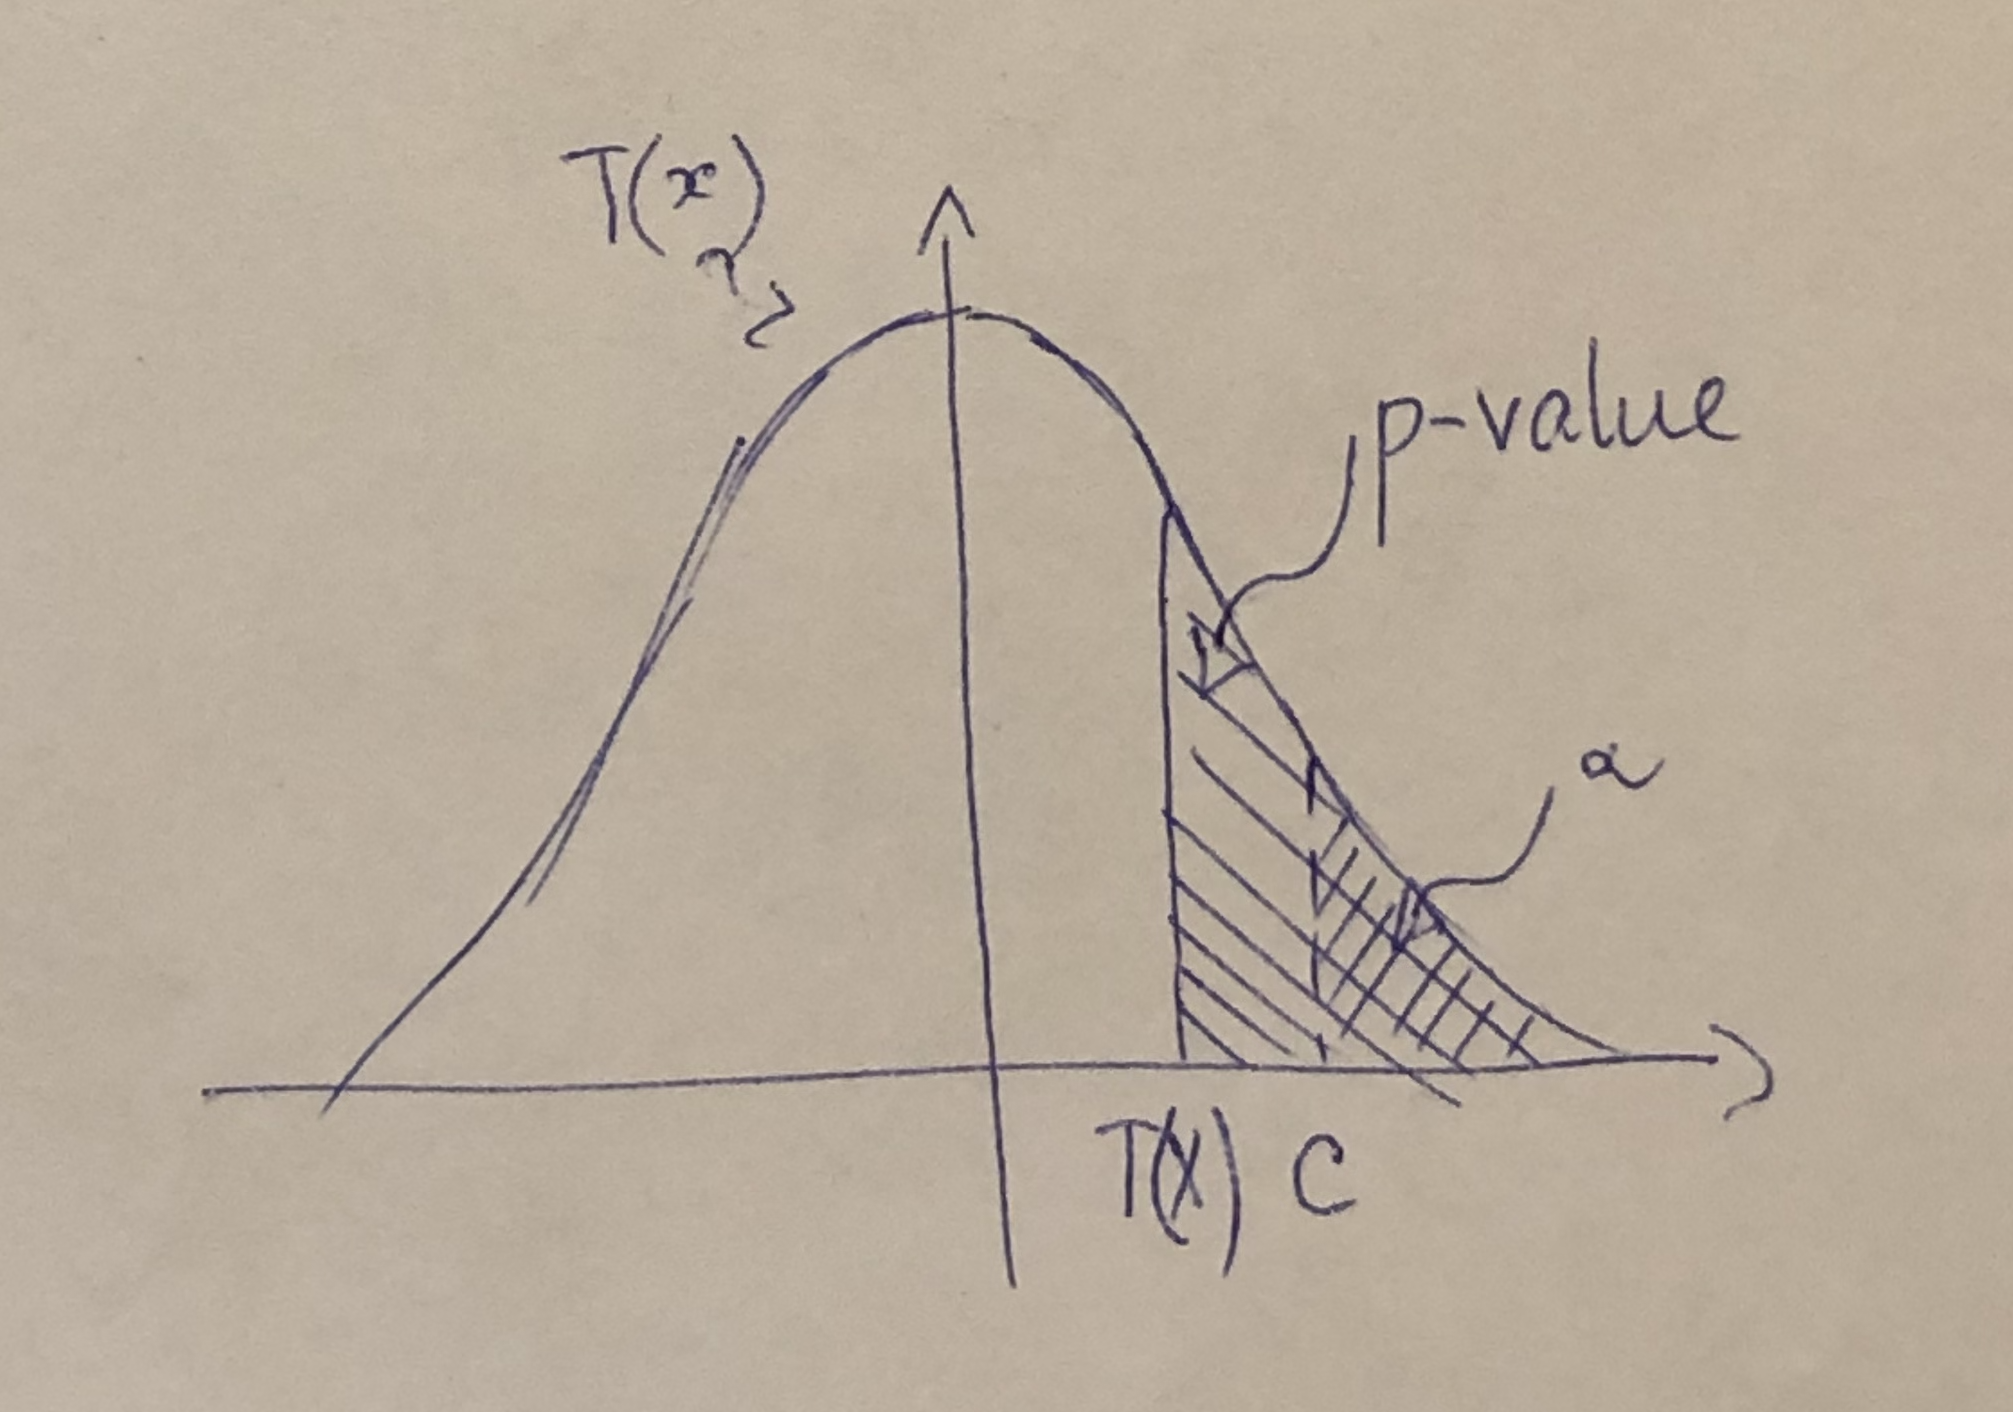 T(x)
p-value
α
T(X) C